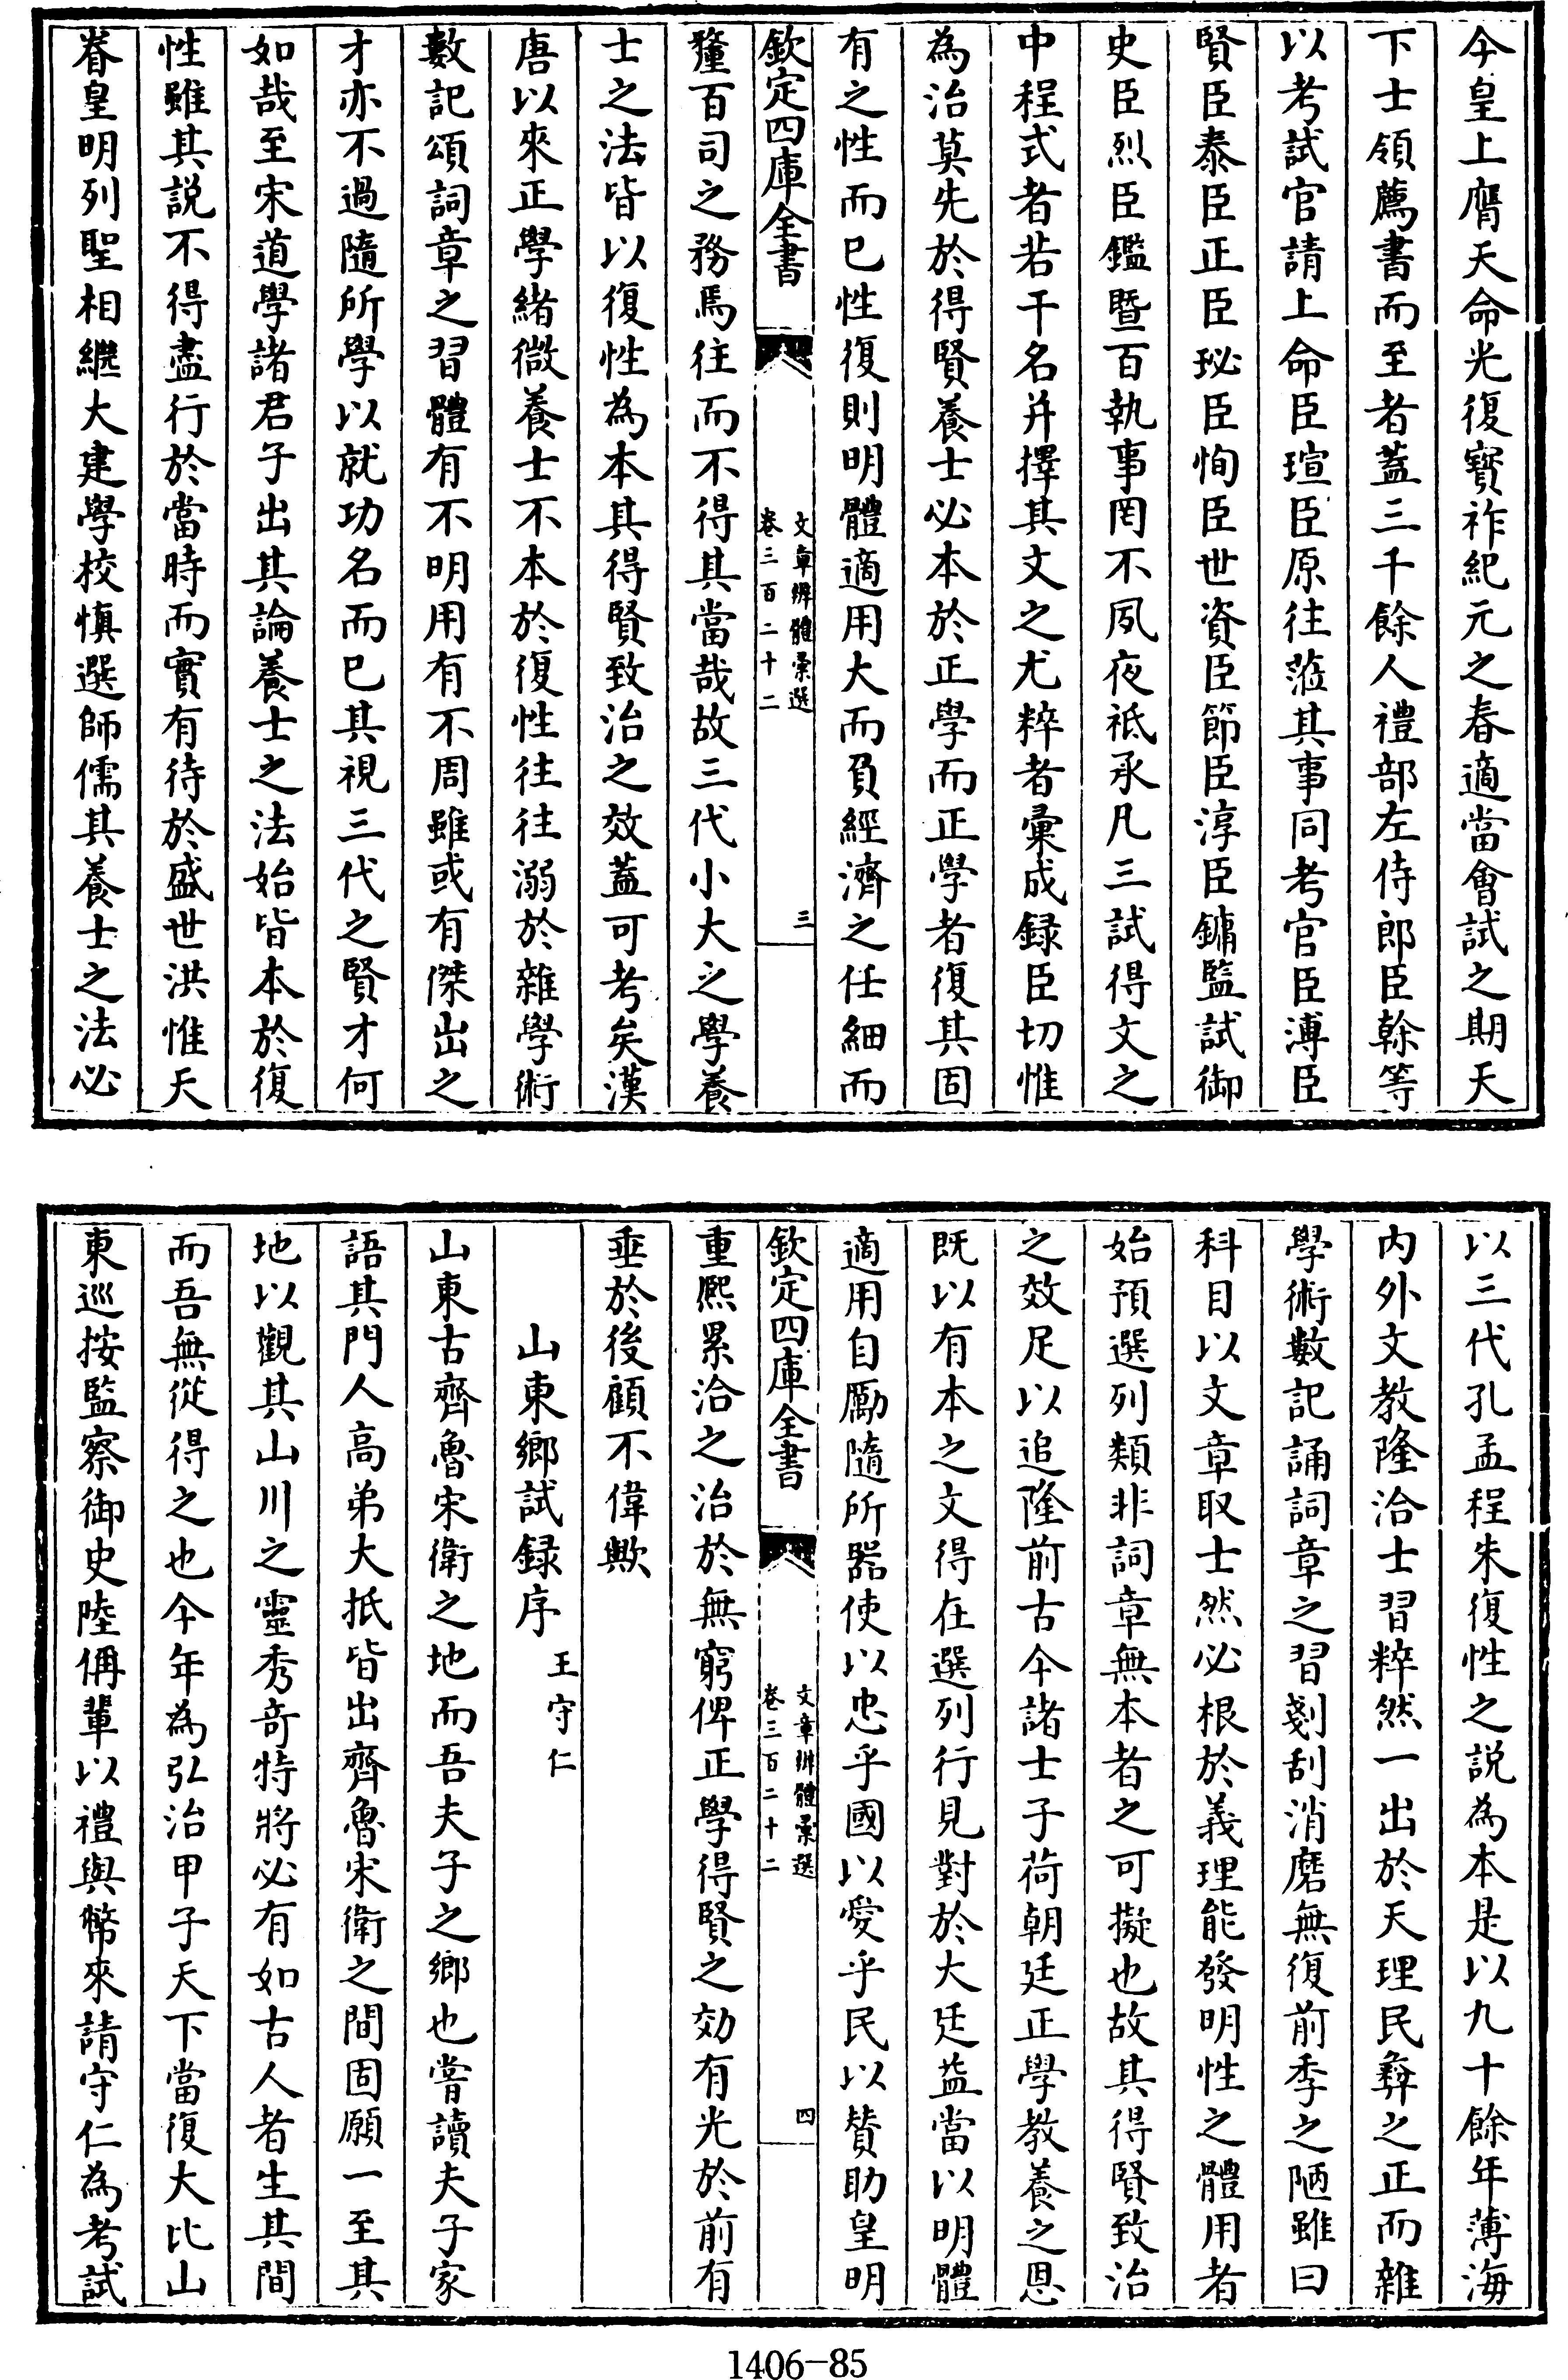 今皇上膺天命光復寳祚紀元之春適當會試之期天
下士領薦書而至者蓋三千餘人禮部左侍郎臣榦等
以考試官請上命臣瑄臣原往蒞其事同考官臣溥臣
賢臣泰臣正臣珌臣恂臣世資臣節臣淳臣鏞監試御
史臣烈臣鑑暨百執事罔不夙夜祗承凡三試得文之
中程式者若干名并擇其文之尤粹者彙成録臣切惟
為治莫先於得賢養士必本於正學而正學者復其固
有之性而已性復則明體適用大而負經濟之任細而
欽定四庫全書
文章辨體彙選
卷三百二十二
三
釐百司之務焉往而不得其當哉故三代小大之學養
士之法皆以復性為本其得賢致治之效蓋可考矣漢
唐以來正學緒微養士不本於復性往往溺於雜學術
數記頌詞章之習體有不明用有不周雖或有傑出之
才亦不過隨所學以就功名而已其視三代之賢才何
如哉至宋道學諸君子出其論養士之法始皆本於復
性雖其説不得盡行於當時而實有待於盛世洪惟天
眷皇明列聖相繼大建學校慎選師儒其養士之法必
以三代孔孟程朱復性之説為本是以九十餘年薄海
内外文教隆洽士習粹然一出於天理民彝之正而雜
學術數記誦詞章之習剗刮消磨無復前季之陋雖曰
科目以文章取士然必根於義理能發明性之體用者
始預選列類非詞章無本者之可擬也故其得賢致治
之效足以追隆前古今諸士子荷朝廷正學教養之恩
既以有本之文得在選列行見對於大廷益當以明體
適用自勵隨所器使以忠乎國以愛乎民以賛助皇明
欽定四庫全書
文章辨體彙選
卷三百二十二
四
重熈累洽之治於無窮俾正學得賢之効有光於前有
垂於後顧不偉歟
山東鄉試録序
王守仁
山東古齊魯宋衛之地而吾夫子之鄉也嘗讀夫子家
語其門人高弟大抵皆出齊魯宋衛之間固願一至其
地以觀其山川之靈秀竒特將必有如古人者生其間
而吾無從得之也今年為弘治甲子天下當復大比山
東巡按監察御史陸偁輩以禮與幣來請守仁為考試
1406-85